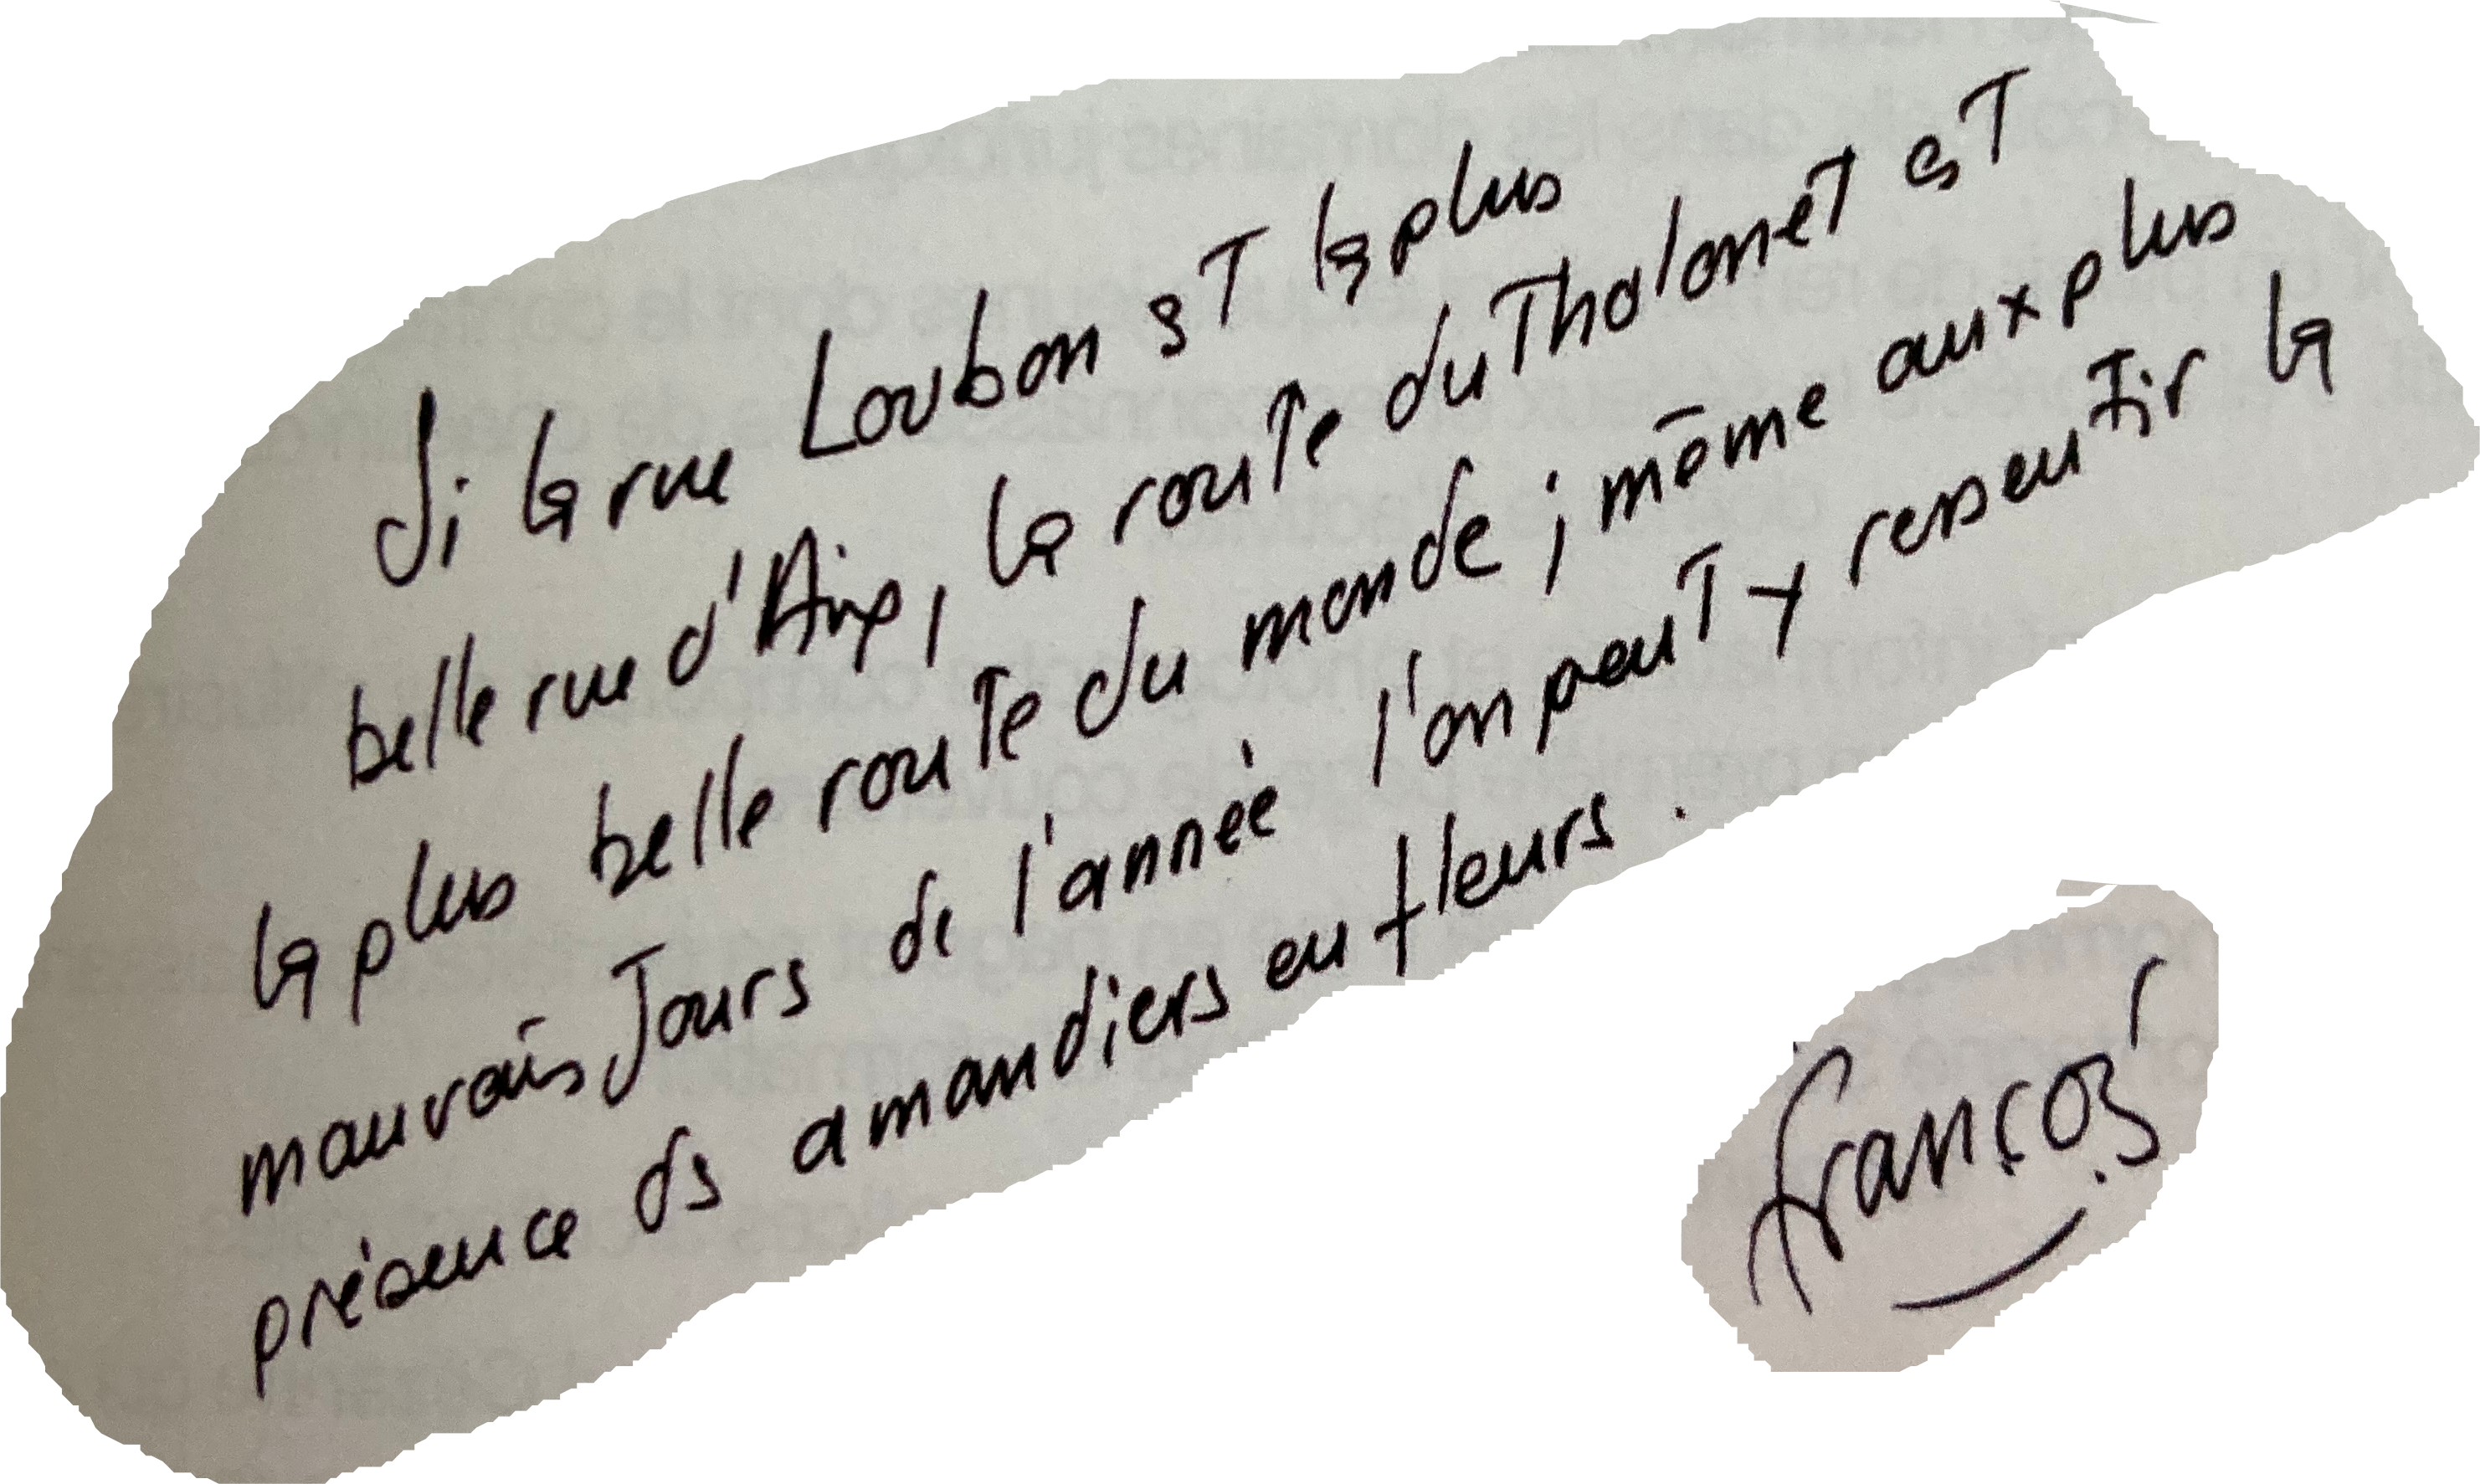 Si la rue Loubon est la plus
belle rue d'Aix, la route du Tholonet est
la plus belle route du monde ; même aux plus
mauvais Jours de l'année l'on peut y ressentir la
présence des amandiers en fleurs.
François